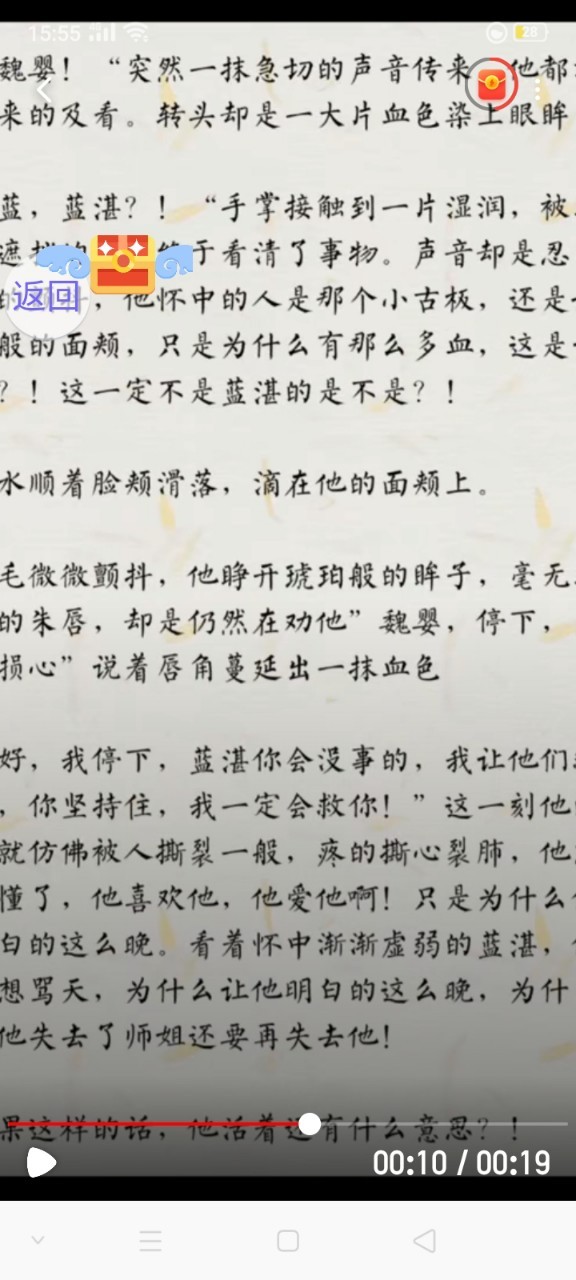 15:55
28
魏婴！“突然一抹急切的声音传来 他都
来的及看。转头却是一大片血色染上眼眸
蓝，蓝湛？！“手掌接触到一片湿润，被
遮 于看清了事物。声音却是忍
返回
的 ，他怀中的人是那个小古板，还是
般的面颊，只是为什么有那么多血，这是
？！这一定不是蓝湛的是不是？！
水顺着脸颊滑落，滴在他的面颊上。
毛微微颤抖，他睁开琥珀般的眸子，毫无
的朱唇，却是仍然在劝他”魏婴，停下，
损心”说着唇角蔓延出一抹血色
好，我停下，蓝湛你会没事的，我让他们
，你坚持住，我一定会救你！”这一刻他
就仿佛被人撕裂一般，疼的撕心裂肺，他
懂了，他喜欢他，他爱他啊！只是为什么
白的这么晚。看着怀中渐渐虚弱的蓝湛，
想骂天，为什么让他明白的这么晚，为什
他失去了师姐还要再失去他！
果这样的话，他活着还有什么意思？！
00:10 / 00:19